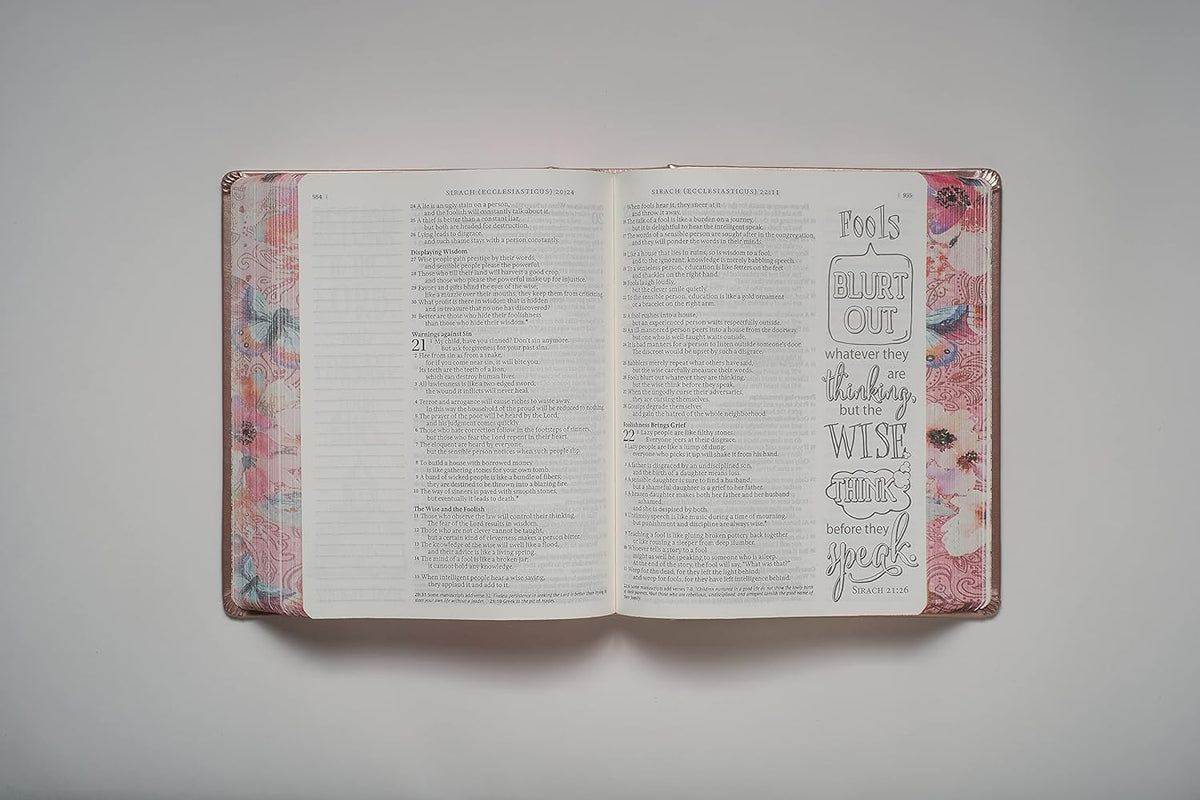 554
SIRACH (ECCLESIASTICUS) 20:24
24 A lie is an ugly stain on a person,
and the foolish will constantly talk about it.
25 A thief is better than a constant liar,
but both are headed for destruction.
26 Lying leads to disgrace,
and such shame stays with a person constantly.
Displaying Wisdom
27 Wise people gain prestige by their words,
and sensible people please the powerful.
28 Those who till their land will harvest a good crop,
and those who please the powerful make up for injustice.
29 Favors and gifts blind the eyes of the wise;
like a muzzle over their mouths, they keep them from criticizing.
30 What profit is there in wisdom that is hidden
and in treasure that no one has discovered?
31 Better are those who hide their foolishness
than those who hide their wisdom.*
Warnings against Sin
21 1 My child, have you sinned? Don't sin anymore.
But ask forgiveness for your past sins.
2 Flee from sin as from a snake,
for if you come near sin, it will bite you.
Its teeth are the teeth of a lion,
which can destroy human lives.
3 All lawlessness is like a two-edged sword;
the wound it inflicts will never heal.
4 Terror and arrogance will cause riches to waste away.
In this way the household of the proud will be reduced to nothing.
5 The prayer of the poor will be heard by the Lord,
and his judgment comes quickly.
6 Those who hate correction follow in the footsteps of sinners,
but those who fear the Lord repent in their heart.
7 The eloquent are heard by everyone,
but the sensible person notices when such people slip.
8 To build a house with borrowed money
is like gathering stones for your own tomb.
9 A band of wicked people is like a bundle of fibers;
they are destined to be thrown into a blazing fire.
10 The way of sinners is paved with smooth stones,
but eventually it leads to death.*
The Wise and the Foolish
11 Those who observe the law will control their thinking.
The fear of the Lord results in wisdom.
12 Those who are not clever cannot be taught,
but a certain kind of cleverness makes a person bitter.
13 The knowledge of the wise will swell like a flood,
and their advice is like a living spring.
14 The mind of a fool is like a broken jar;
it cannot hold any knowledge.
15 When intelligent people hear a wise saying,
they applaud it and add to it.
20:31 Some manuscripts add verse 32, Tireless persistence in seeking the Lord is better than trying to
steer your own life without a leader. 21:10 Greek to the pit of Hades.
SIRACH (ECCLESIASTICUS) 22:11
555
When fools hear it, they sneer at it
and throw it away.
16 The talk of a fool is like a burden on a journey,
but it is delightful to hear the intelligent speak.
17 The words of a sensible person are sought after in the congregation,
and they will ponder the words in their minds.
18 Like a house that lies in ruins, so is wisdom to a fool;
and to the ignorant, knowledge is merely babbling speech.
19 To a senseless person, education is like fetters on the feet
and shackles on the right hand.
20 Fools laugh loudly,
but the clever smile quietly.
21 To the sensible person, education is like a gold ornament
or a bracelet on the right arm.
22 A fool rushes into a house,
but an experienced person waits respectfully outside.
23 An ill mannered person peers into a house from the doorway,
but one who is well-taught waits outside.
24 It is bad manners for a person to listen outside someone's door.
The discreet would be upset by such a disgrace.
25 Babblers merely repeat what others have said,
but the wise carefully measure their words.
26 Fools blurt out whatever they are thinking,
but the wise think before they speak.
27 When the ungodly curse their adversaries,
they are cursing themselves.
28 Gossips degrade themselves
and gain the hatred of the whole neighborhood.
Foolishness Brings Grief
22 1 Lazy people are like filthy stones.
Everyone jeers at their disgrace.
2 Lazy people are like a lump of dung;
everyone who picks it up will shake it from his hand.
3 A father is disgraced by an undisciplined son,
and the birth of a daughter means loss.
4 A sensible daughter is sure to find a husband,
but a shameful daughter is a grief to her father.
5 A brazen daughter makes both her father and her husband
ashamed,
and she is despised by both.
6 Untimely speech is like music during a time of mourning,
but punishment and discipline are always wise.*
9 Teaching a fool is like gluing broken pottery back together
or like rousing a sleeper from deep slumber.
10 Whoever tells a story to a fool
might as well be speaking to someone who is asleep.
At the end of the story, the fool will say, "What was that?"
11 Weep for the dead, for they left the light behind;
and weep for fools, for they have left intelligence behind.
22:6 Some manuscripts add verses 7-8, Children nurtured in a good life do not show the lowly birth
of their parents. But those who are rebellious, undisciplined, and arrogant tarnish the good name of
their family.
Fools
BLURT
OUT
whatever they
are
thinking,
but the
WISE
THINK
before they
speak.
SIRACH 21:26